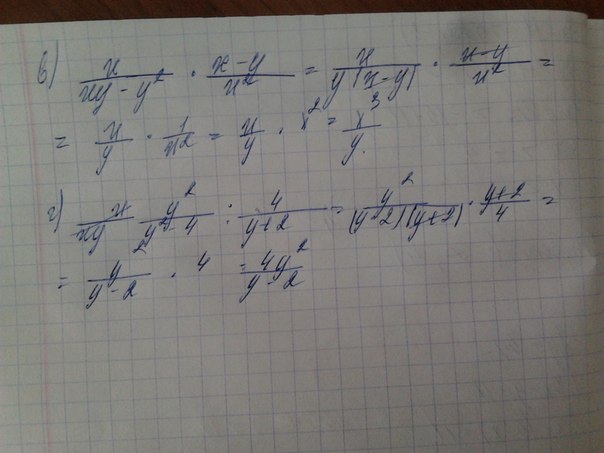 в) x/(xy - y²) · (x - y)/x² = x/(y(x - y)) · (x - y)/x² =
= x/y · 1/x² = x/y · x² = x³/y.
г) x/xy y²/(y² - 4) : 4/(y + 2) = y²/((y - 2)(y + 2)) · (y + 2)/4 =
= y/(y - 2) · 4 = 4y²/(y - 2)